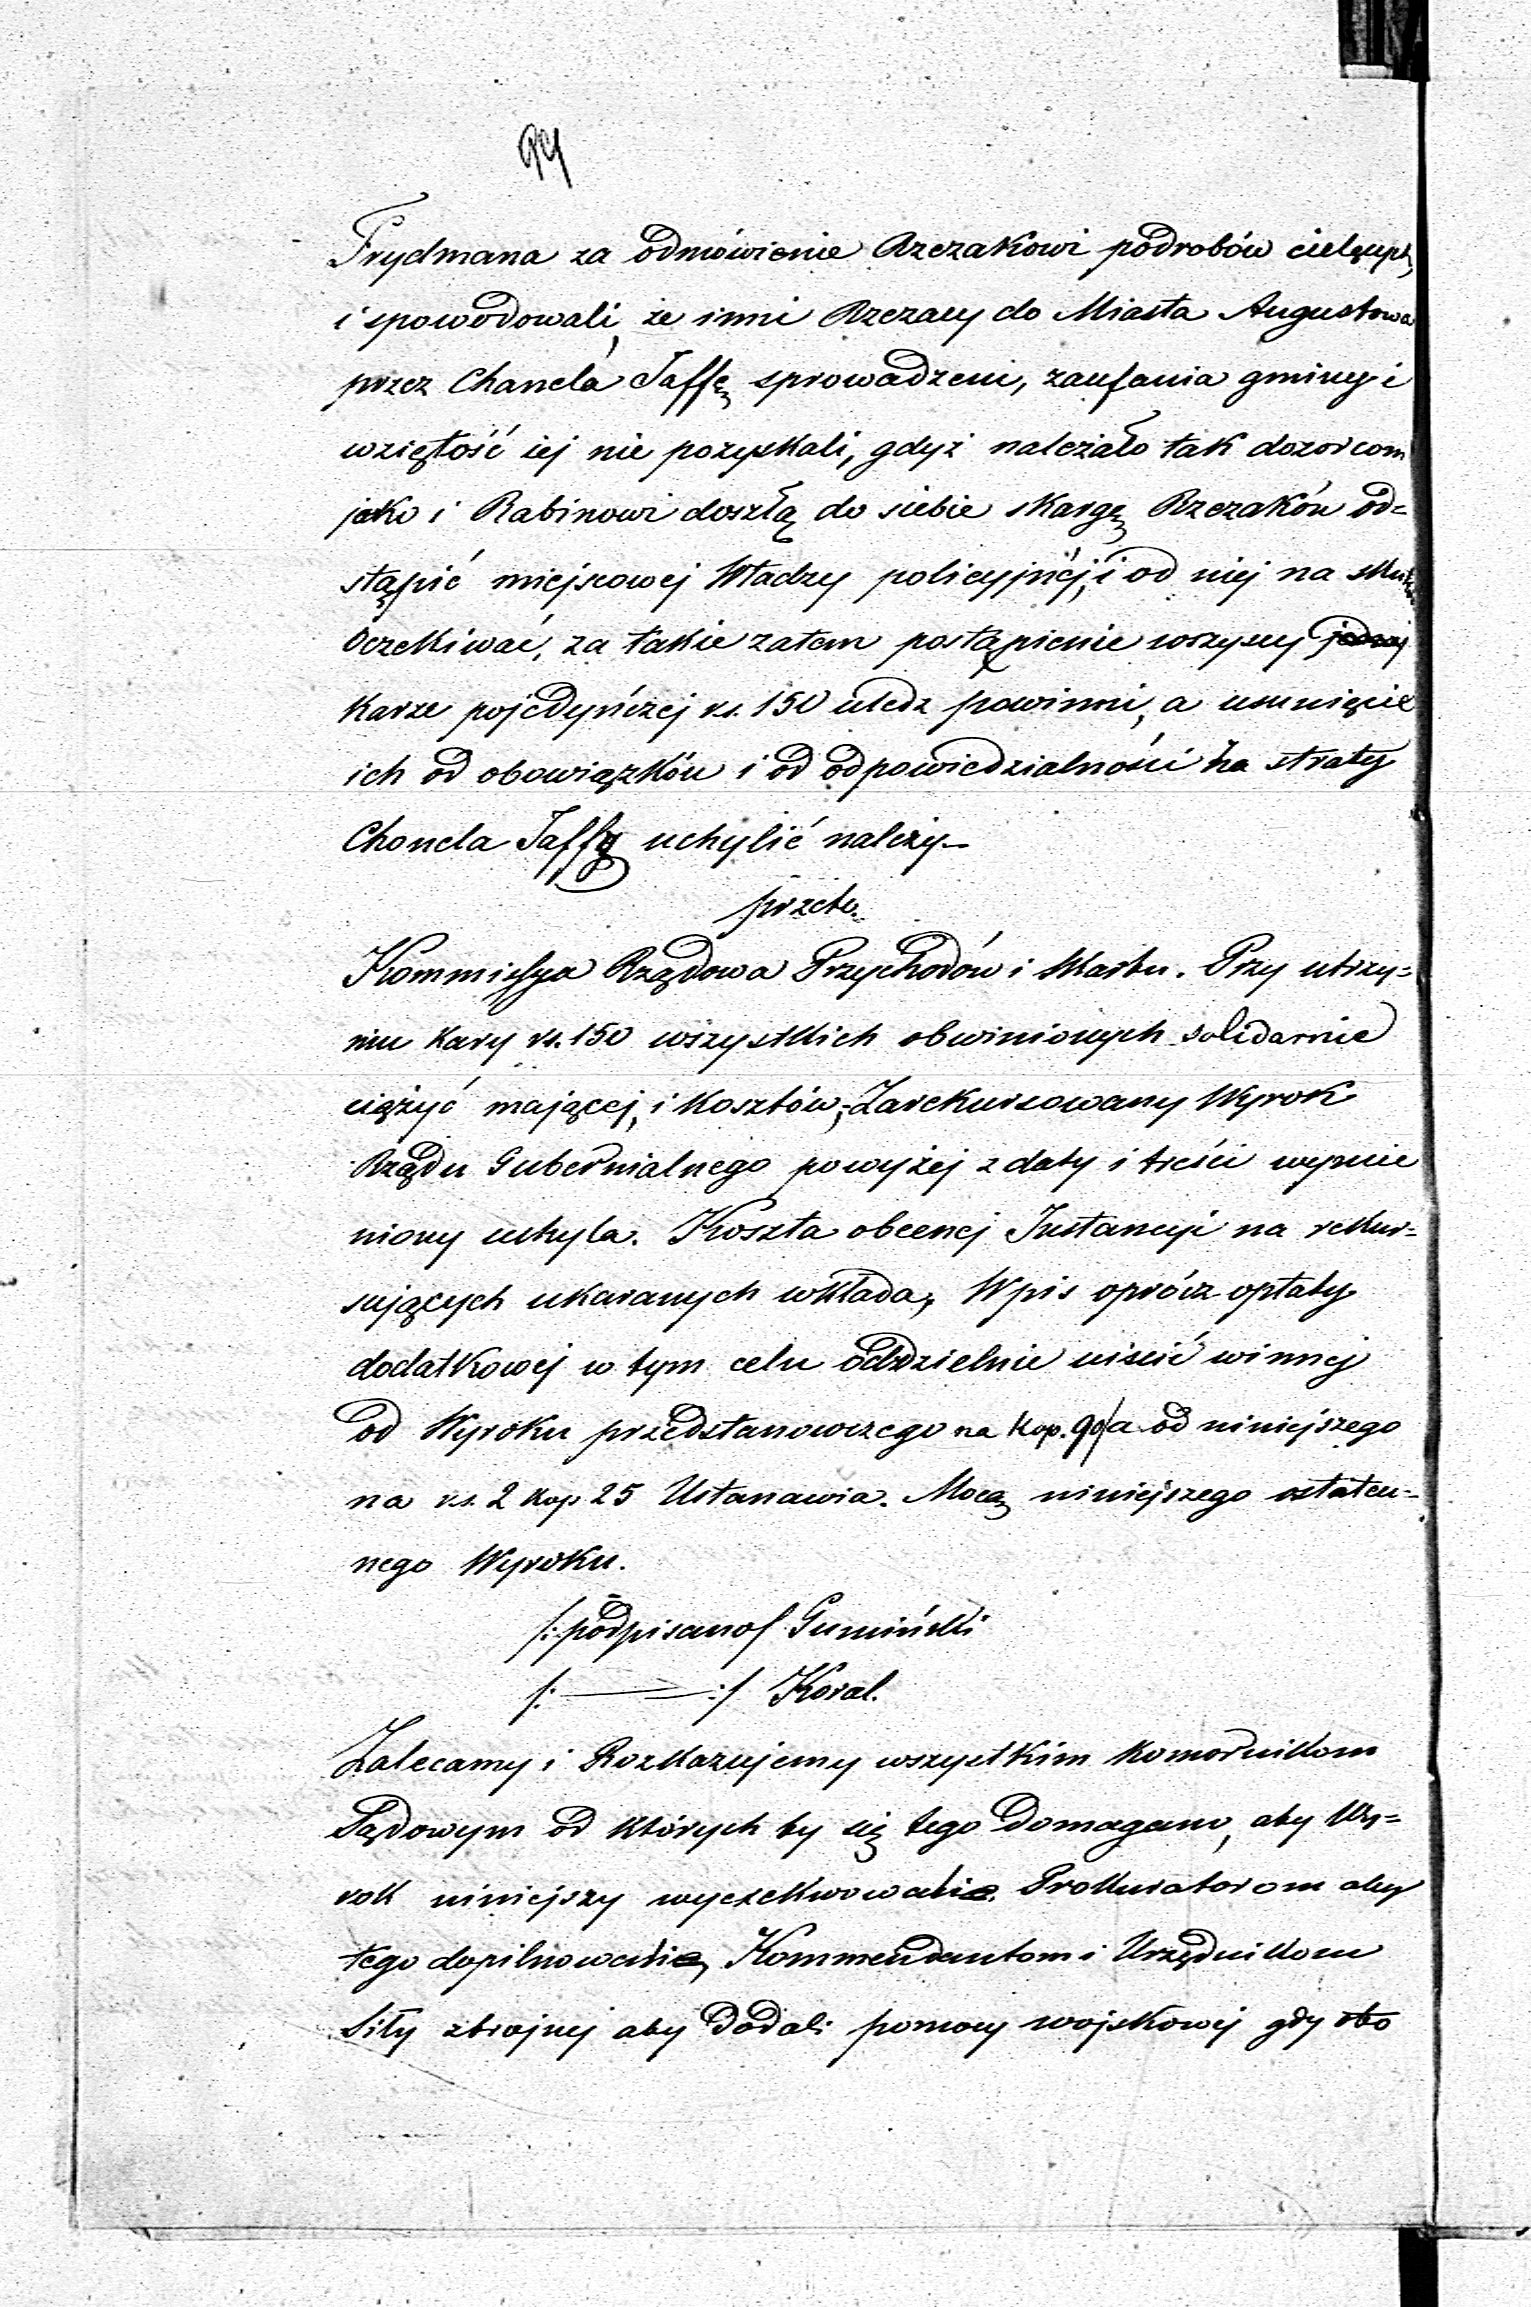 94
Frydmana za odmówienie Rzezakowi podrobów cielęcych,
i spowodowali, że inni Rzezacy do Miasta Augustowa
przez Chanela Jaffę sprowadzeni, zaufania gminy i
wziętość iej nie pozyskali, gdyż należało tak dozorcom
jako i Rabinowi doszłą do siebie skargę Rzezaków od=
stąpić miejscowej Władzy policyjnéj, i od niej na skutku
oczekiwać, za takie zatem postąpienie wszyscy
karze pojedyńczéj rs. 150 uledz powinni, a usunięcie
ich od obowiązków i od odpowiedzialności za straty
Chonela Jaffy uchylić należy—
przeto.
Kommissya Rządowa Przychodów i Skarbu. Przy utrzy=
niu kary rs. 150 wszystkich obwinionych solidarnie
ciążyć mającej, i kosztów, Zarekursowany Wyrok
Rządu Gubernialnego powyżej z daty i treści wymie
niony uchyla. Koszta obecnej Instancji na rekur=
sujących ukaranych wkłada, Wpis oprócz opłaty
dodatkowej w tym celu oddzielnie uiścić winnej
od Wyroku przedstanowczego na kop. 90/a od niniejszego
na rs. 2 kop 25 Ustanawia. Mocą niniejszego ostatecz=
nego Wyroku.
/: podpisano/ Gumiński
/: ——— :/ Koral.
Zalecamy i Rozkazujemy wszystkim Komornikom
Sądowym od których by się tego domagano, aby Wy=
rok niniejszy wyexekwowali. Prokuratorom aby
tego dopilnowali, Kommendantom i Urzędnikom
Siły zbrojnej aby dodali pomocy wojskowej gdy oto